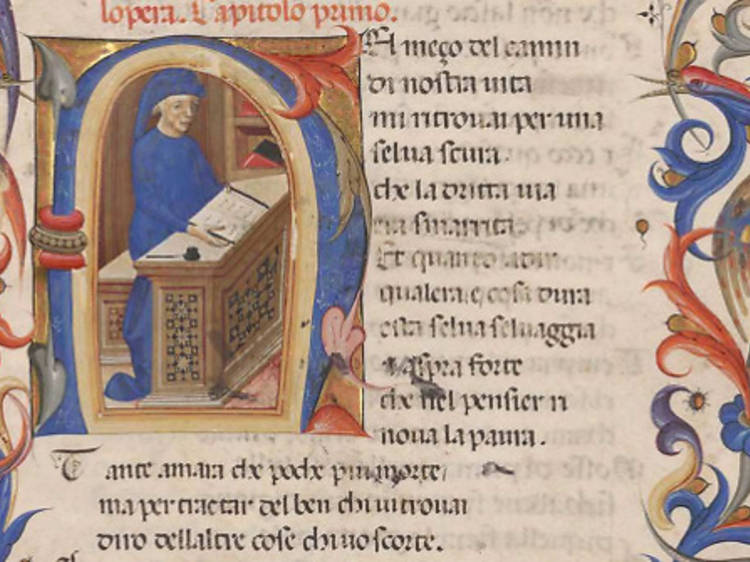 lopera. Capitolo primo.
Nel meço del camin
di nostra uita
mi ritrouai per una
selua scura.
che la dritta uia
era smarrita.
Et quanto adir
qualera, e cosa dura
esta selua seluaggia
aspra forte
che nel pensier ri
noua la paura.
Tante amara che pocho piu morte,
ma per tractar del ben chiui trouai
diro dellaltre cose chiuo scorte.